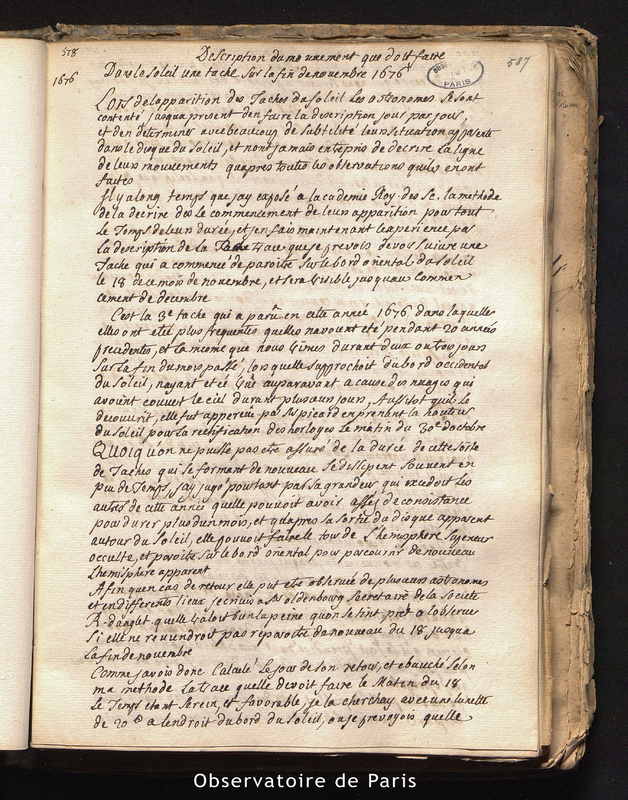 578
587
Description du mouvement que doit faire
Dans le soleil une tache sur la fin de novembre 1676
OBSERVATOIRE DE PARIS
1676
Lors de lapparition des Taches du soleil les astronomes se sont
contenté jusqua present den faire la description jour par jour,
et den determiner avec beaucoup de subtilité leur situation apparente
dans le disque du soleil, et nont jamais entrepris de decrire la ligne
de leurs mouvements quapres toutes les observations quils en ont
faites
Il y a long temps que jay exposé a lacademie Roy. des Sc. la methode
de la decrire des le commencement de leur apparition pour tout
le Temps de leur durée, et jen fais maintenant lexperience par
la description de la Trace que je prevois devoir suivre une
Tache qui a commencé de paroitre sur le bord oriental du soleil
le 18 de ce mois de novembre, et sera visible jusquau commen
cement de decembre
Cest la 3e tache qui a paru en cette année 1676 dans laquelle
elles ont eté plus frequentes quelles navoient eté pendant 20 années
precedentes, et la meme que nous vimes durant deux ou trois jours
sur la fin du mois passé, lors quelle sapprochoit du bord occidental
du soleil, nayant eté vue auparavant a cause des nuages qui
avoient couvert le ciel durant plusieurs jours, Aussitot quil se
decouvrit, elle fut apperceue par Mr picard en prenant la hauteur
du soleil pour la rectification des horloges le matin du 30e doctobre
Quoiquon ne puisse pas etre assuré de la durée de cette sorte
de Taches qui se formant de nouveau se dissipent souvent en
peu de Temps, jay jugé pourtant par sa grandeur qui excedoit les
autres de cette année quelle pouvoit avoir assés de consistance
pour durer plus dun mois, et quapres sa sortie du disque apparent
autour du soleil, elle pouvoit faire le tour de lhemisphere superieur
occulte, et paroitre sur le bord oriental pour parcourir de nouveau
lhemisphere apparent
Afin quen cas de retour elle put etre observée de plusieurs astronomes
et en differents lieux jecrivis a Mr oldenbourg Secretaire de la Societé
R. dAnglet quelle valoit bien la peine quon se tint pret a lobserver
si elle ne reviendroit pas reparoitre de nouveau du 18 jusqua
la fin de novembre
Comme javois donc Calculé le jour de son retour, et ebauché selon
ma methode la trace quelle devoit faire le Matin du 18
le Temps etant serein, et favorable, je la cherchay avec une lunette
de 20 a lendroit du bord du soleil, ou je prevoyois quelle
Observatoire de Paris